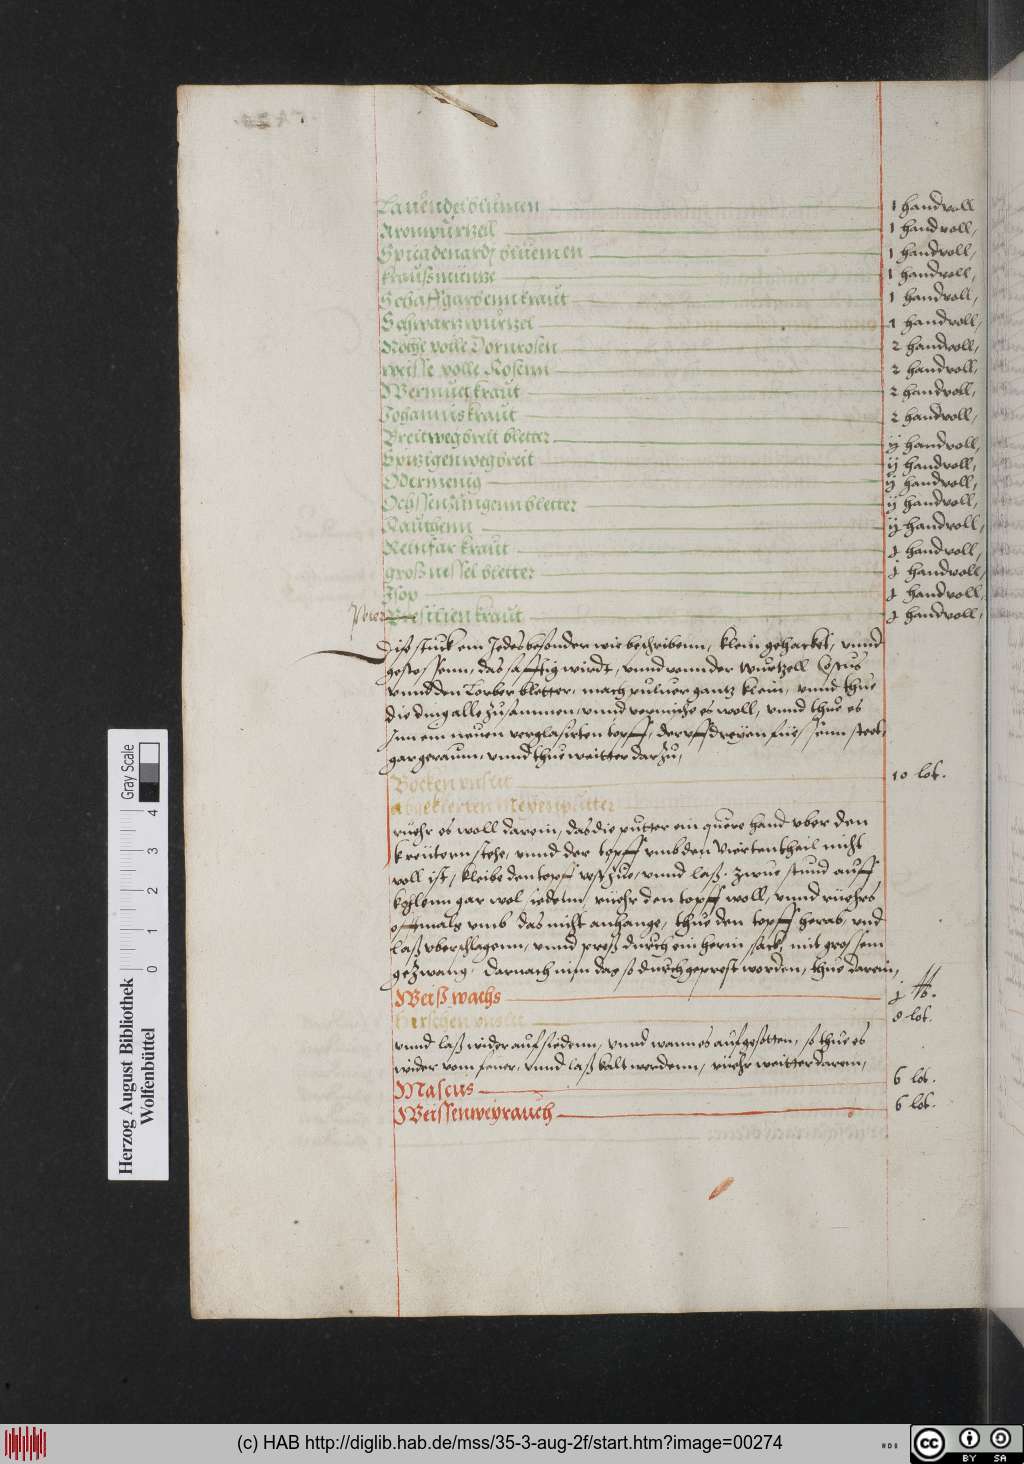 Lauendelblumen 1 handvoll
Aronwurtzell 1 handvoll,
Spicadenardj bluemen 1 handvoll,
kraußmüntze 1 handvoll,
Schaffgarbenn kraut 1 handvoll,
Schwartzwurtzel 1 handvoll,
Rothe volle Dornrosen 2 handvoll,
weisse volle Rosenn 2 handvoll,
Wermutt kraut 2 handvoll,
Johannis kraut 2 handvoll,
Breitwegbreit bletter ij handvoll,
Spitzigen wegbreit ij handvoll,
Odermenig ij handvoll,
Ochssenzungenn bletter ij handvoll,
Rauthenn ij handvoll,
Reinfar kraut j handvoll,
groß nessel bletter j handvoll,
Isop j handvoll,
kraut j handvoll,
Diß stuck ein Jedes besonder wie beschribenn, klein gehacket, vnnd
gestossenn, das safftig wirdt, vnnd vonn der Wurtzell Costus
vnnd den Lorber bletter, mach puluer gantz klein, vnnd thue
die ding alle zusammen, vnnd vermische es woll, vnnd thue es
Inn ein neuen verglasirten topff, der vff dreyen füessenn steet,
gar geraum, vnnd thue weitter darzu,
Bocken vnslit 10 lot.
abgeklerten Meyenputter
rüehr es woll darein, das die putter ein quere hand vber den
kreüttern stehe, vnnd der topff vmb den Viertentheil nicht
voll ist, kleibe den topff vest zue, vnnd laß zwue stund auff
kohlenn gar wol siedenn, rüehr den topff woll, vnnd rüehrs
offtmals vmb das nicht anhange, thue den topff herab, vnd
laß vberschlagenn, vnnd preß durch ein herin sack, mit grossem
gezwang, darnach nim das so durchgeprest worden, thue darein,
Weiß wachs j ℔.
Hirschen vnslit 8 lot.
vnnd laß wider auf siedenn, vnnd wann es aufgesotten, so thue es
wider vom feuer, vnnd laß kalt werdenn, rüehr weitter darein,
Mascus 6 lot.
Weissenweyrauch 6 lot.
Herzog August Bibliothek
Wolfenbüttel
0 1 2 3 4
Gray Scale
(c) HAB http://diglib.hab.de/mss/35-3-aug-2f/start.htm?image=00274
cc BY SA